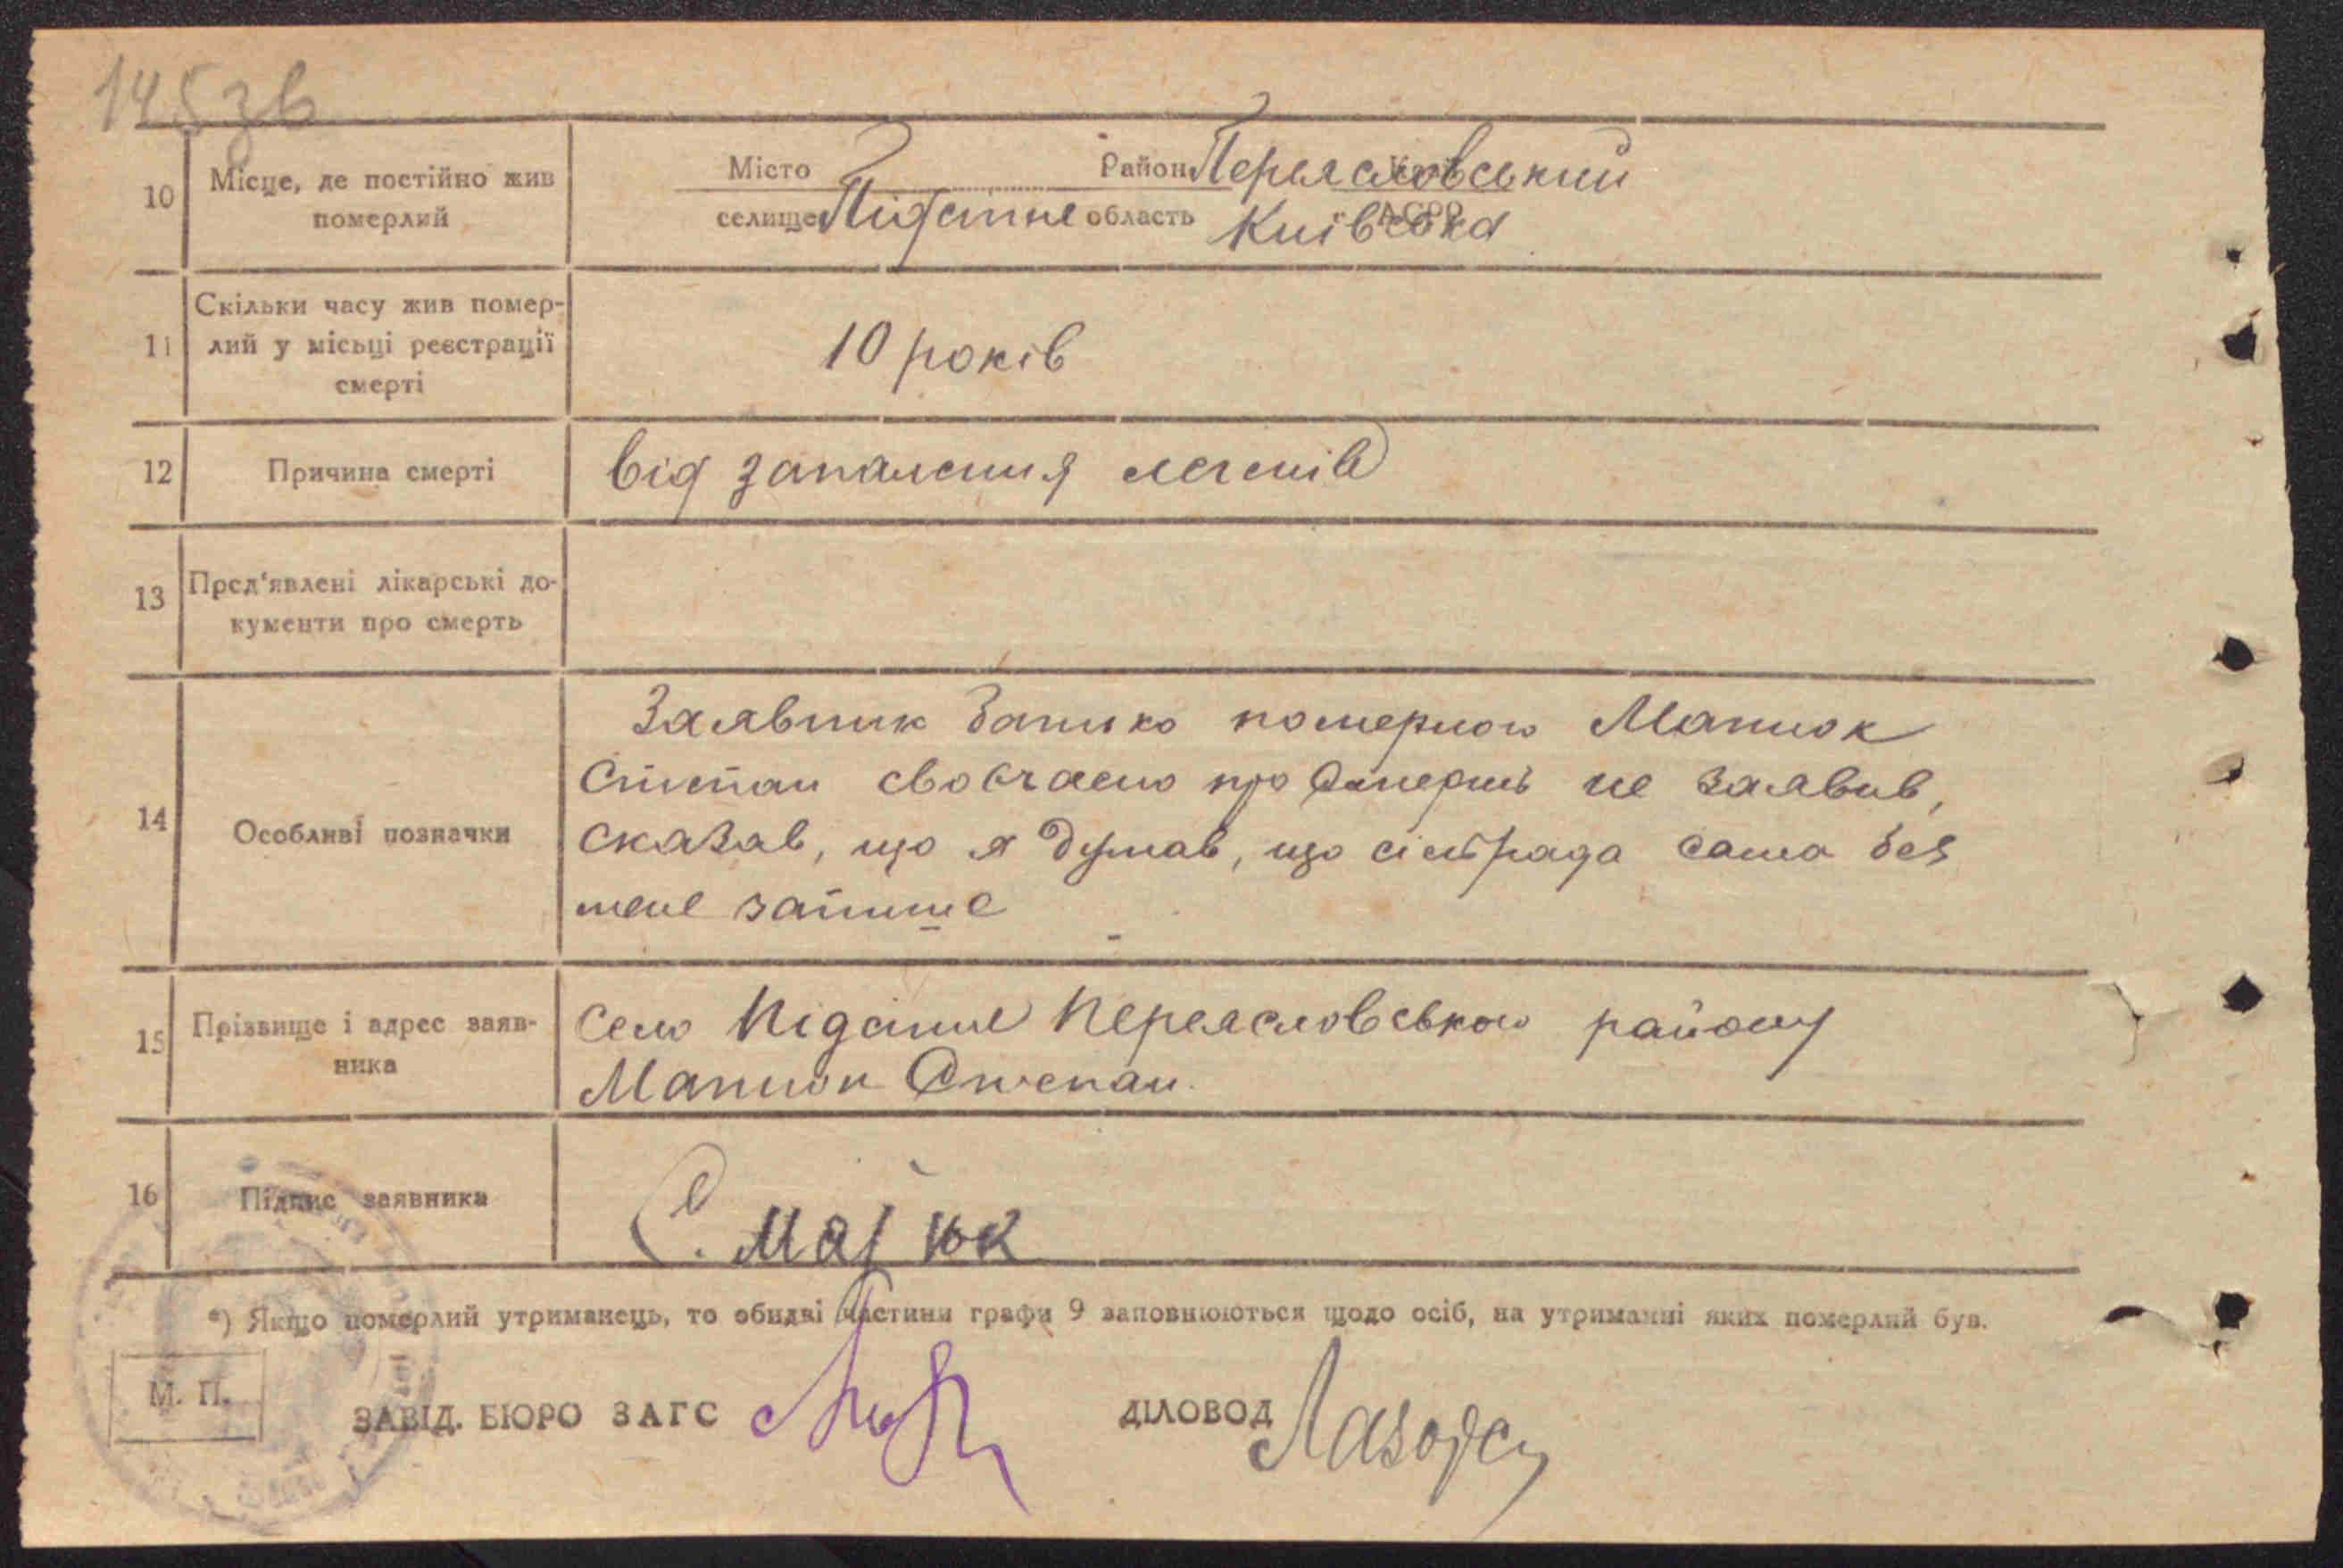 145зв
10 Місце, де постійно жив померлий
Місто Район Переяславський
селище Підсінне область Київська
11 Скільки часу жив помер-
лий у місьці реєстрації
смерті
10 років
12 Причина смерті
від запалення легенів
13 Пред'явлені лікарські до-
кументи про смерть
14 Особливі позначки
Заявник батько померлого Матюк
Степан своєчасно про смерть не заявив,
сказав, що я думав, що сільрада сама без
мене запише
15 Прізвище і адрес заяв-
ника
Село Підсінне Переяславського району
Матюк Степан.
16 Підпис заявника
С. Матюк
*) Якщо померлий утриманець, то обидві частини графи 9 заповнюються щодо осіб, на утриманні яких померлий був.
М. П.
ЗАВІД. БЮРО ЗАГС ДІЛОВОД